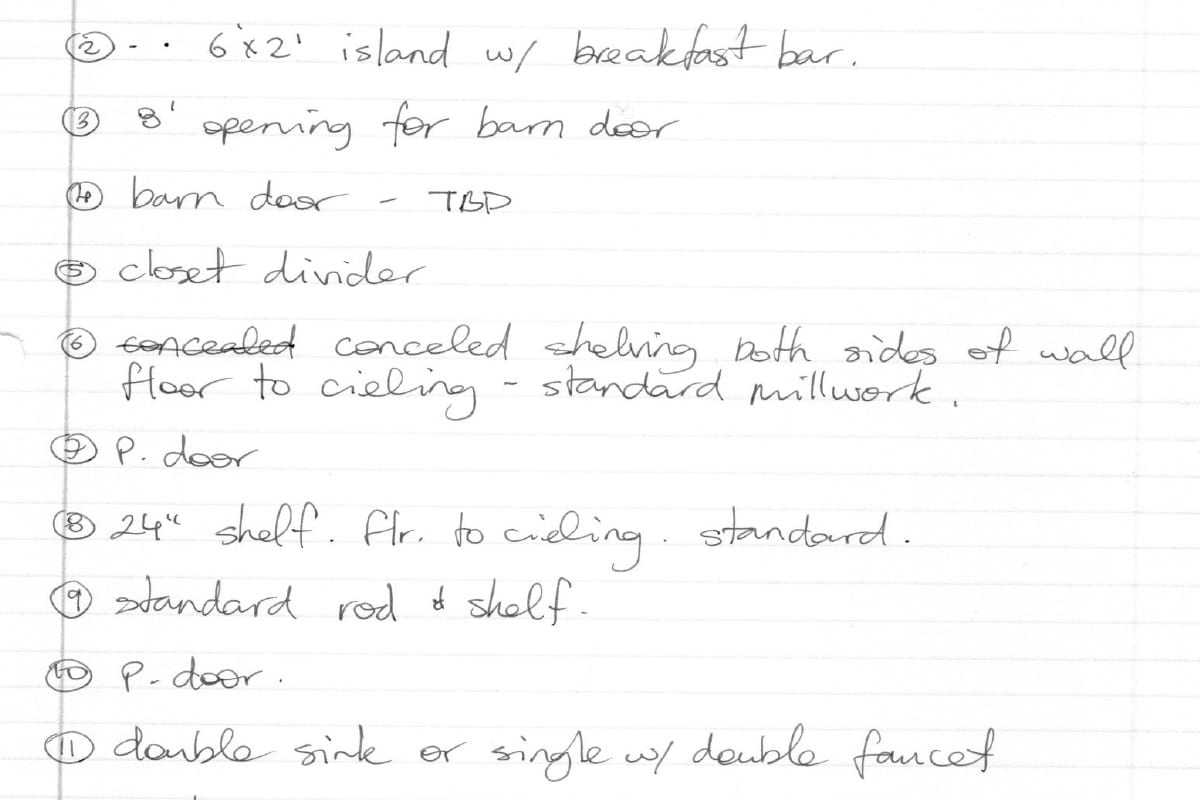 ② - · 6'x2' island w/ breakfast bar.
③ 8' opening for barn door
④ barn door - TBD
⑤ closet divider
⑥ concealed conceled shelving both sides of wall
floor to cieling - standard millwork.
⑦ P. door
⑧ 24" shelf. flr. to cieling. standard.
⑨ standard rod & shelf.
⑩ P-door.
⑪ double sink or single w/ double faucet